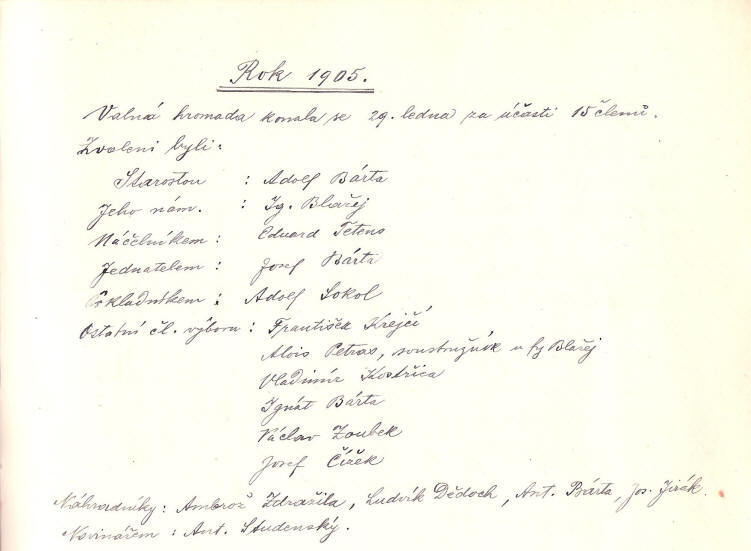 Rok 1905.
Valná hromada konala se 29. ledna za účasti 15 členů.
Zvoleni byli:
Starostou : Adolf Bárta
Jeho nám. : Ig. Blažej
Náčelníkem : Eduard Tetens
Jednatelem : Josef Bárta
Pokladníkem : Adolf Sokol
Ostatní čl. výboru : František Krejčí
Alois Petras, soustružník u fy Blažej
Vladimír Kostřica
Ignát Bárta
Václav Zoubek
Josef Čížek
Náhradníky : Ambrož Zdražila, Ludvík Dědoch, Ant. Bárta, Jos. Jirák.
Novinářem : Ant. Studenský.